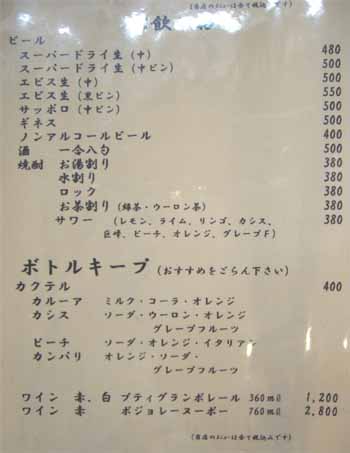 (当店のメニューは全て税込みです)
飲
ビール
スーパードライ生 (中) 480
スーパードライ生 (中ビン) 500
エビス生 (中) 500
エビス生 (黒ビン) 550
サッポロ (中ビン) 500
ギネス 500
ノンアルコールビール 400
酒 一合八勺 500
焼酎 お湯割り 380
水割り 380
ロック 380
お茶割り (緑茶・ウーロン茶) 380
サワー (レモン、ライム、リンゴ、カシス、 380
巨峰、ピーチ、オレンジ、グレープF)
ボトルキープ (おすすめをごらん下さい)
カクテル 400
カルーア ミルク・コーラ・オレンジ
カシス ソーダ・ウーロン・オレンジ
グレープフルーツ
ピーチ ソーダ・オレンジ・イタリアン
カンパリ オレンジ・ソーダ・
グレープフルーツ
ワイン 赤、白 プティグランポレール 360mℓ 1,200
ワイン 赤 ボジョレーヌーボー 760mℓ 2,800
(当店のメニューは全て税込みです)